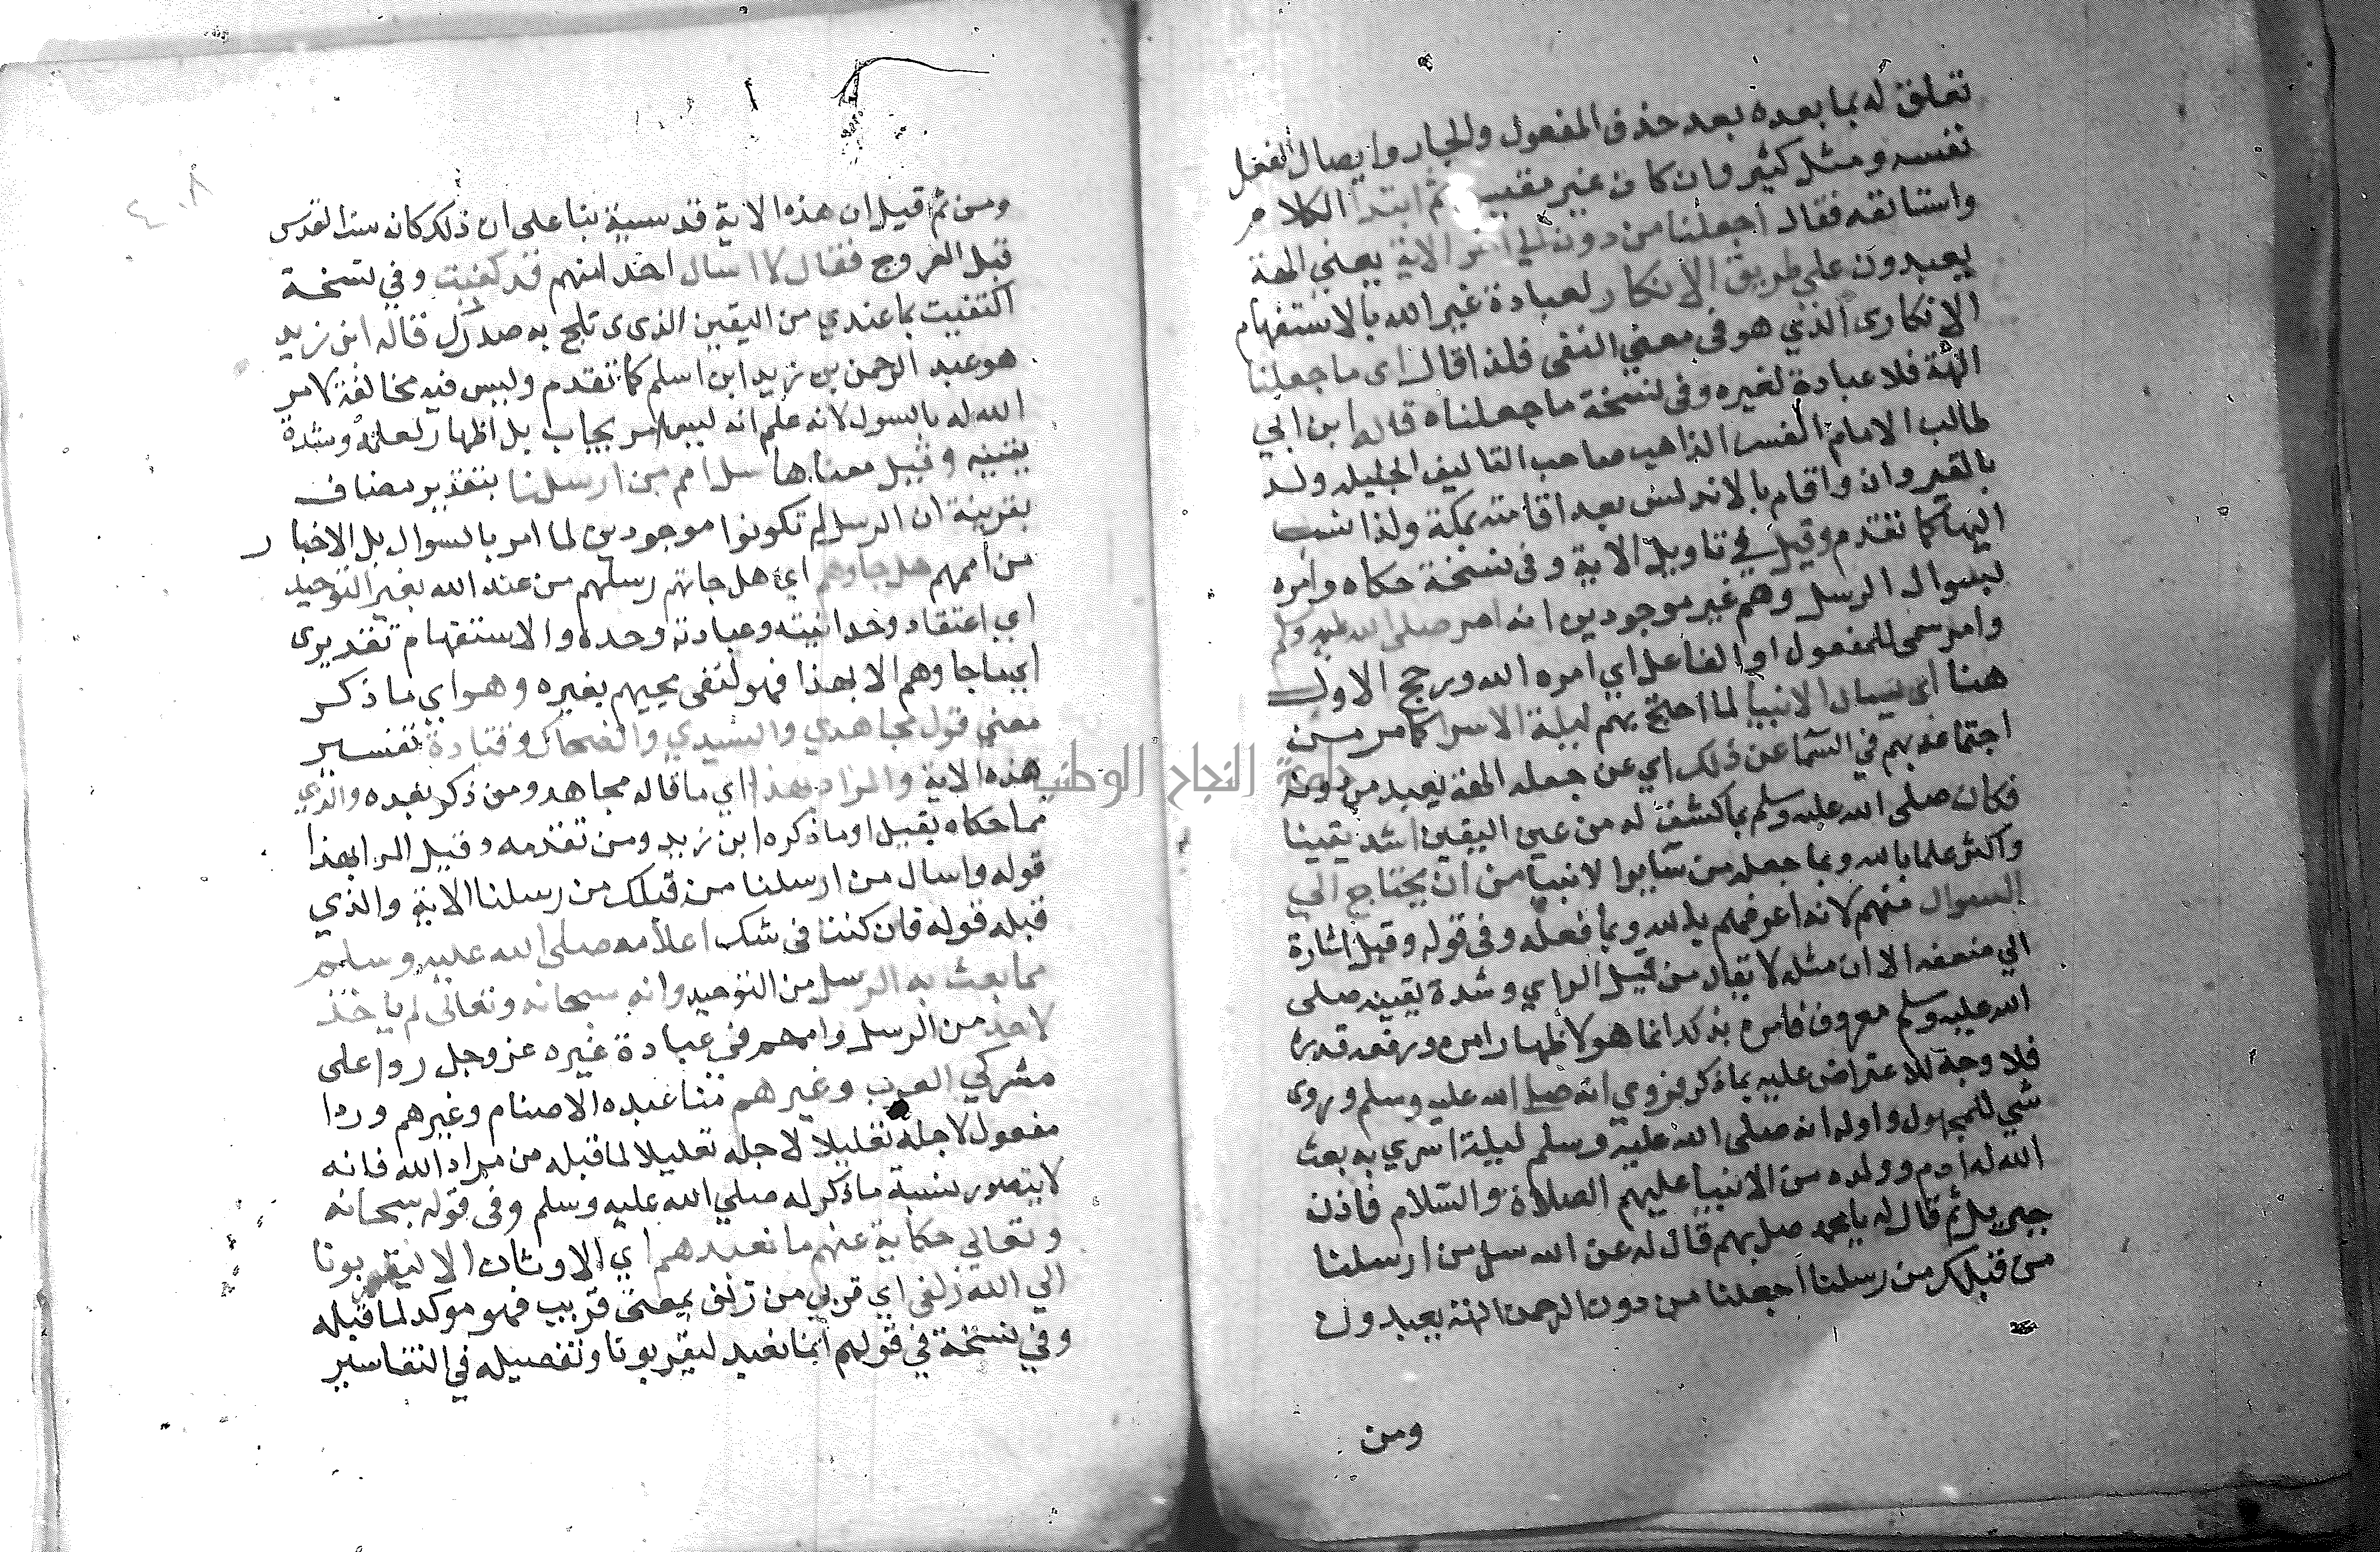 تعلق له بما بعده بعد حذف المفعول والجار وايصال الفعل
نفسه ومثله كثير وان كان غير مقيس ثم ابتدا الكلام
واستانفه فقال اجعلنا من دون الي اخر الاية يعني الهة
يعبدون علي طريق الانكار لعبادة غير الله بالاستفهام
الانكاري الذي هو في معني النفي فلذا قال اي ما جعلنا
الهة فلا عبادة لغيره وفي نسخة ما جعلناه قاله ابن ابي
طالب الامام المفسر الذاهب صاحب التاليف الجليله ولد
بالقيروان واقام بالاندلس بعد اقامته بمكة ولذا نسب
اليها كما تقدم وقيل في تاويل الاية وفي نسخة حكاه وامره
لسوال الرسل وهم غير موجودين انه امر صلى الله عليه وسلم
وامر سمى للمفعول او الفاعل اي امره الله ورجح الاول
هنا اي يسال الانبيا لما اجتمع بهم ليلة الاسرا كما مر من
اجتماعه بهم في السما عن ذلك اي عن جعله الهة يعبد من دونه
فكان صلى الله عليه وسلم بما كشف له من عين اليقين اشد يقينا
واكثر علما بالله وبما جعله من ساير الانبيا من ان يحتاج الي
السوال منهم لانه اعرفهم بالله وبما فعله وفي قوله وقيل اشارة
الي ضعفه الا ان مثله لا يقال من قبيل الراي وشدة يقينه صلى
الله عليه وسلم معروف فامره بذلك انما هو لاظهار امره ورفعه قدره
فلا وجه للاعتراض عليه بما ذكر فروي انه صلى الله عليه وسلم وروى
للمجهول واوله انه صلى الله عليه وسلم ليلة اسري به بعث
الله له ادم وولده من الانبيا عليهم الصلاة والسلام فاذن
جبريل ثم قال له يا محمد صل بهم قال له عن الله سل من ارسلنا
من قبلك من رسلنا اجعلنا من دون الرحمن الهة يعبدون
ومن
٤٠٨
ومن ثم قيل ان هذه الاية قدسية بنا على ان ذلك كان القدس
قبل العروج فقال لا اسال احد منهم قد كفيت وفي نسخة
اكتفيت بما عندي من اليقين الذي ثلج به صدرك قاله ابن زيد
هو عبد الرحمن بن زيد ابن اسلم كما تقدم وليس فيه مخالفة لامر
الله له بالسول لانه علم انه ليس امر يجاب بل اظهار لعلمه وشدة
يقينه وقيل معناها سل امم من ارسلنا بتقدير مضاف
بقرينة ان الرسل لم تكونوا موجودين لما امر بالسوال بل الاخبار
من اممهم هل جاوهم اي هل جاتهم رسلهم من عند الله بغير التوحيد
اي اعتقاد وحدانيته وعبادته وحده والاستفهام تقديرى
اي ما جاوهم الا بهذا فهو لنفى مجيهم بغيره وهو اي ما ذكر
معنى قول مجاهدي والسدي والضحاك وقتادة تفسير
هذه الاية والمراد بهذا اي ما قاله مجاهد ومن ذكر بعده والذي
مما حكاه بقيل او ما ذكره ابن زيد ومن تقدمه وقيل المراد بهذا
قوله واسال من ارسلنا من قبلك من رسلنا الاية والذي
قبله قوله فان كنت في شك اعلامه صلى الله عليه وسلم
مما بعث به الرسل من التوحيد وانه سبحانه وتعالى لم ياخذ
لاحد من الرسل واممهم في عبادة غيره عز وجل ردا على
مشركي العرب وغيرهم عبده الاصنام وغيرهم وردا
مفعول لاجله تعليلا لاجله تعليلا لما قبله من مراد الله فانه
لا يتصور نسبة ما ذكر له صلي الله عليه وسلم وفي قوله سبحانه
وتعالي حكاية عنهم ما نعبدهم اي الاوثان الا ليقربونا
الي الله زلفى اي قربي من زلف بمعنى قريب فهو موكد لما قبله
وفي نسخة في قولهم انما نعبد ليقربونا وتفصيله في التفاسير
جامعة النجاح الوطنية